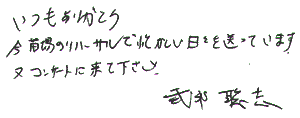 いつもありがとう
今 苗場のリハーサルで忙しい日々を送っています
又 コンサートに来て下さい
武部 聡志